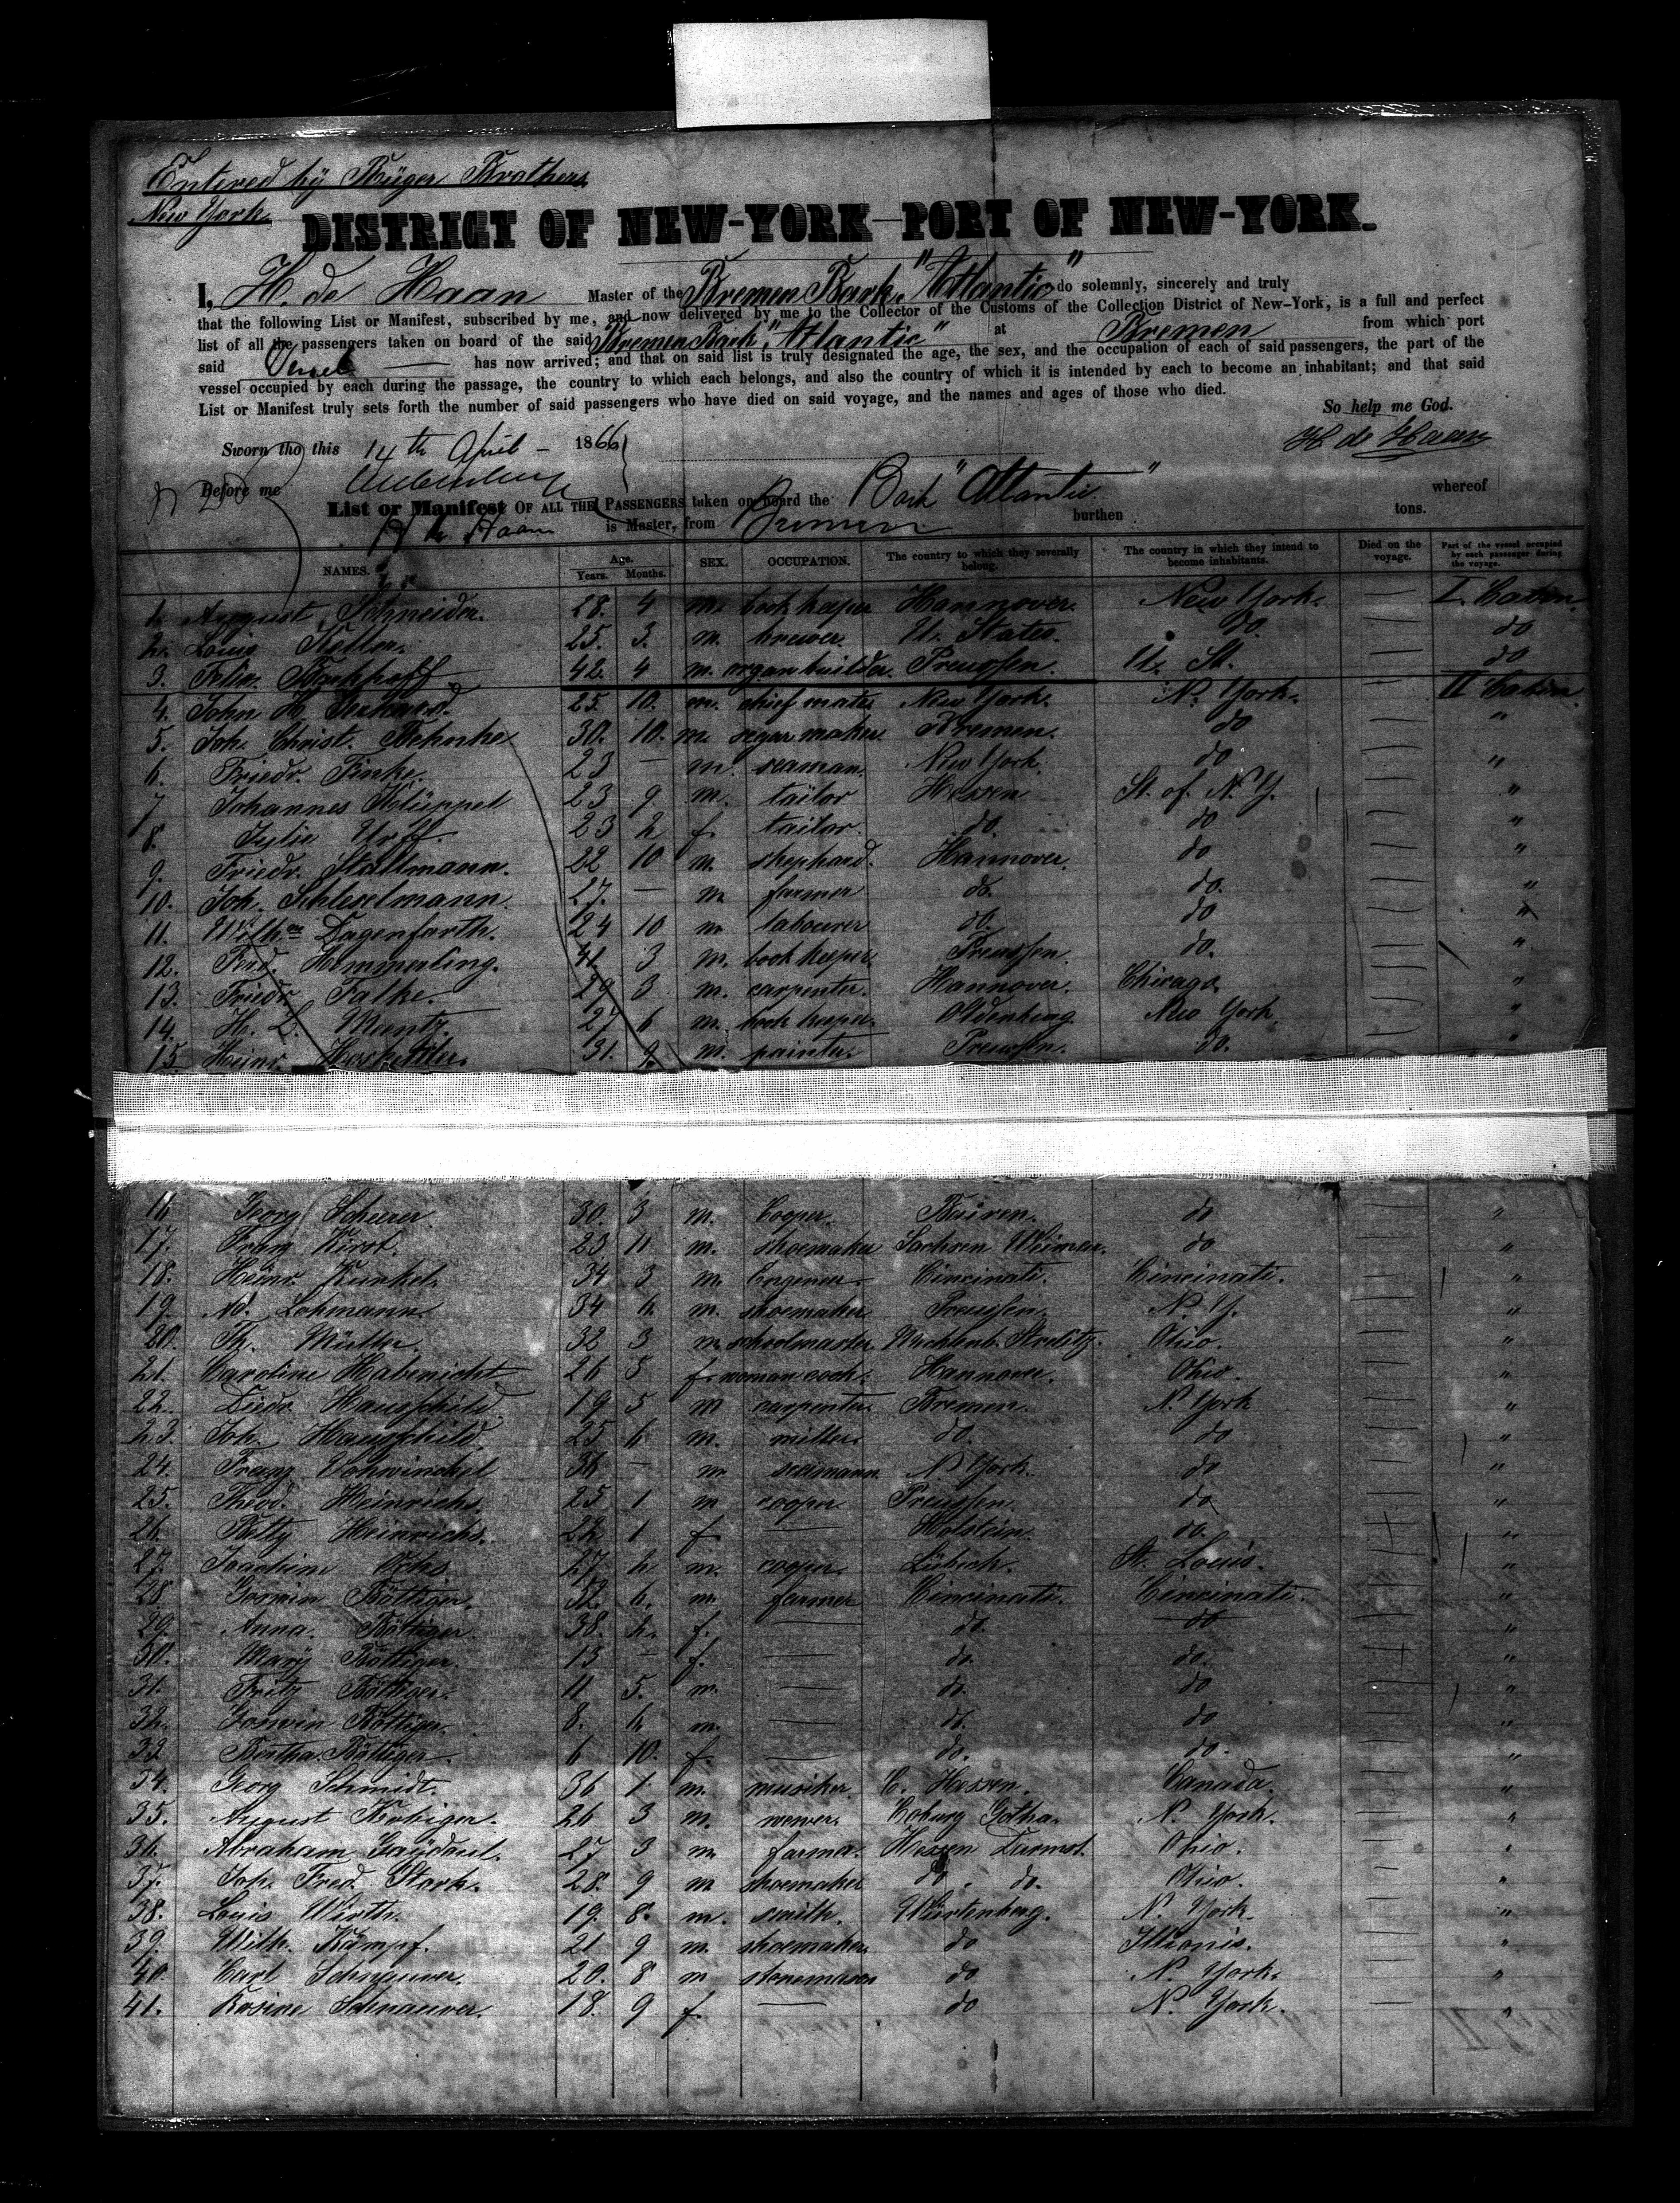 Entered by Rüger Brothers
New York.
DISTRICT OF NEW-YORK—PORT OF NEW-YORK.
I, H. de Haan Master of the Bremen Bark "Atlantic" do solemnly, sincerely and truly
that the following List or Manifest, subscribed by me, and now delivered by me to the Collector of the Customs of the Collection District of New-York, is a full and perfect
list of all the passengers taken on board of the said Bremen Bark "Atlantic" at Bremen from which port
said Vessel has now arrived; and that on said list is truly designated the age, the sex, and the occupation of each of said passengers, the part of the
vessel occupied by each during the passage, the country to which each belongs, and also the country of which it is intended by each to become an inhabitant; and that said
List or Manifest truly sets forth the number of said passengers who have died on said voyage, and the names and ages of those who died.
So help me God.
Sworn tho this 14th April 1866 H de Haan
Before me
List or Manifest OF ALL THE PASSENGERS taken on board the Bark "Atlantic" whereof
H de Haan is Master, from Bremen burthen tons.
NAMES. Age. Years. Months. SEX. OCCUPATION. The country to which they severally belong. The country in which they intend to become inhabitants. Died on the voyage. Part of the vessel occupied by each passenger during the voyage.
1. August Schneider. 28. 4 m. book keeper Hannover. New York. — I. Cabin.
2. Louis Keller. 25. 3. m. brewer. U. States. do. — do
3. Felix Barkhoff 42. 4 m. organ builder. Preussen. U. St. — do
4. John H. 25. 10. m. chief mate New York. N. York. — II Cabin.
5. Joh. Christ. Behnke 30. 10. m. segar maker. Bremen. do — "
6. Friedr. Finke. 23 — m. seaman. New York. do — "
7 Johannes Klüppel 23 9. m. tailor Hessen St. of. N. Y. — "
8. Julie Urff. 23 2 f. tailor. do. do — "
9. Friedr. Stallmann. 22 10 m. shephard. Hannover. do — "
10. Joh. Schleselmann. 27. — m farmer do. do. — "
11. Wilhm Dagenfarth. 24 10 m labourer do. do — "
12. Ferd. Hemmerling. 41 3 m. book keeper. Preussen. do. — "
13. Friedr. Falke. 29 3 m. carpenter. Hannover. Chicago. — "
14. H. D. Mentz. 27 6 m. book keeper. Oldenburg New York — "
15 Heinr. 31. 9. m. painter. Preussen. do. — "
16 Georg Scheerer. 30. 3 m. Cooper. Baiern. do — "
17. Franz Kirot. 23 11 m. shoemaker Sachsen Weimar. do — "
18. Heinr. Kunkel. 34 3 m. Engeneer Cincinati. Cincinati. — "
19. Ad. Lohmann 34 6. m. shoemaker Preussen. N. Y. — "
20. Th. Müller. 32 3 m schoolmaster. Mecklenb. Strelitz. Ohio. — "
21. Caroline Habenicht 26 5 f. woman cook. Hannover. Ohio. — "
22. Diedr. Hauschild. 19 5 m carpenter. Bremen. N. York — "
23. Joh. Hauschild. 25 6 m. miller. do. do — "
24. Franz Vohwinckel 36 — m seemann N. York. do — "
25. Theod. Heinrichs 25 1 m cooper Preussen. do — "
26. Betty Heinrichs. 22 1 f — Holstein. do. — "
27. Joachim Ohls 27. 2 m. cooper. Lübeck. St. Louis. — "
28 Goswin Böttiger. 32. 6. m. farmer Cincinati. Cincinati. — "
29. Anna. Böttiger. 38. 2. f. — do. do — "
30. Mary Böttiger. 13 — f. — do. do. — "
31. Fritz Böttiger. 11 5. m. — do. do — "
32. Goswin Böttiger. 8. 6 m. — do. do — "
33. Bertha Böttiger 6 10. f. — do. do. — "
34. Georg Schmidt. 36 1 m. musiker. C. Hessen. Canada. — "
35. August 26 3 m. Coburg Gotha. N. York. — "
36. Abraham 27 3 m farmer. Hessen Darmst. Ohio. — "
37. Joh. Fred. Stark. 28. 9 m shoemaker do. do. Ohio. — "
38. Louis Wirth. 19. 8. m. smith. Würtenberg. N. York. — "
39. Wilh. Kämpf. 21 9 m. shoemaker. do Illionis. — "
40. Carl Schnauwer. 20. 8 m stonemason do N. York. — "
41. Rosine Schnauwer. 18. 9 f. — do N. York. — "